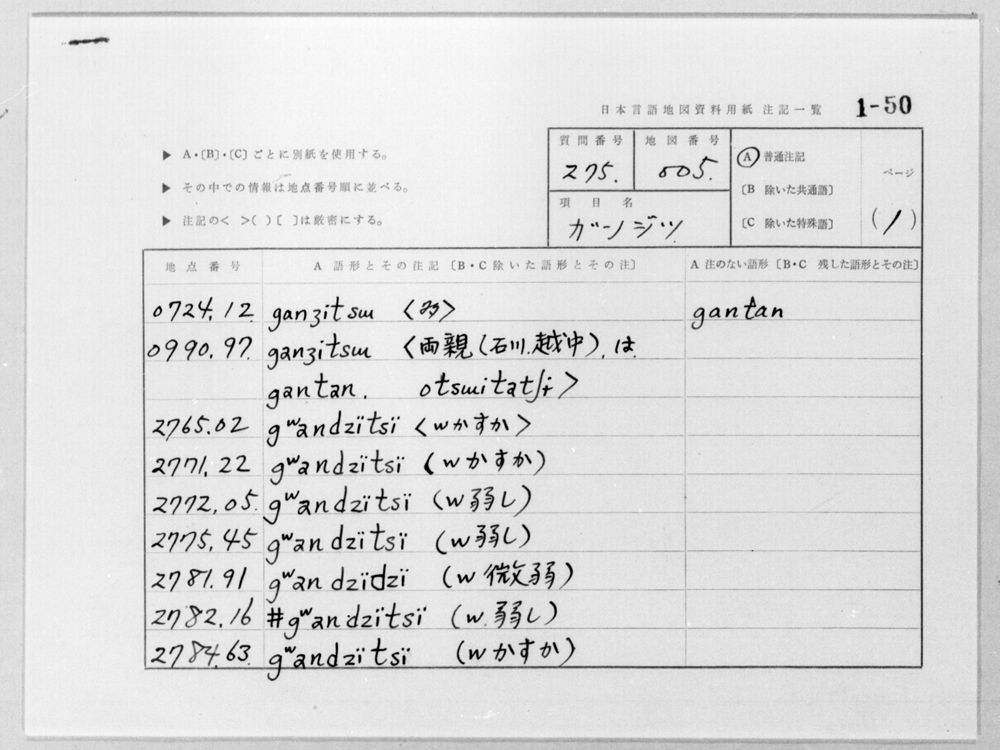 日本言語地図資料用紙 注記一覧 1-50
▶ A・〔B〕・〔C〕ごとに別紙を使用する。
▶ その中での情報は地点番号順に並べる。
▶ 注記の< >( )[ ]は厳密にする。
質問番号 275.
地図番号 005.
項目名
ガンジツ
Ⓐ 普通注記
〔B 除いた共通語〕
〔C 除いた特殊語〕
ページ
(1)
地点番号 A 語形とその注記〔B・C除いた語形とその注〕 A 注のない語形〔B・C 残した語形とその注〕
0724.12 ganʒitsɯ <多> gantan
0990.97 ganʒitsɯ <両親(石川.越中).は
gantan. otsɯitatʃi>
2765.02 gʷandzïtsï <wかすか>
2771.22 gʷandzïtsï (wかすか)
2772.05. gʷandzïtsï (w弱し)
2775.45 gʷandzïtsï (w弱し)
2781.91 gʷandzïdzï (w微弱)
2782.16 #gʷandzïtsï (w.弱し)
2784.63. gʷandzïtsï (wかすか)